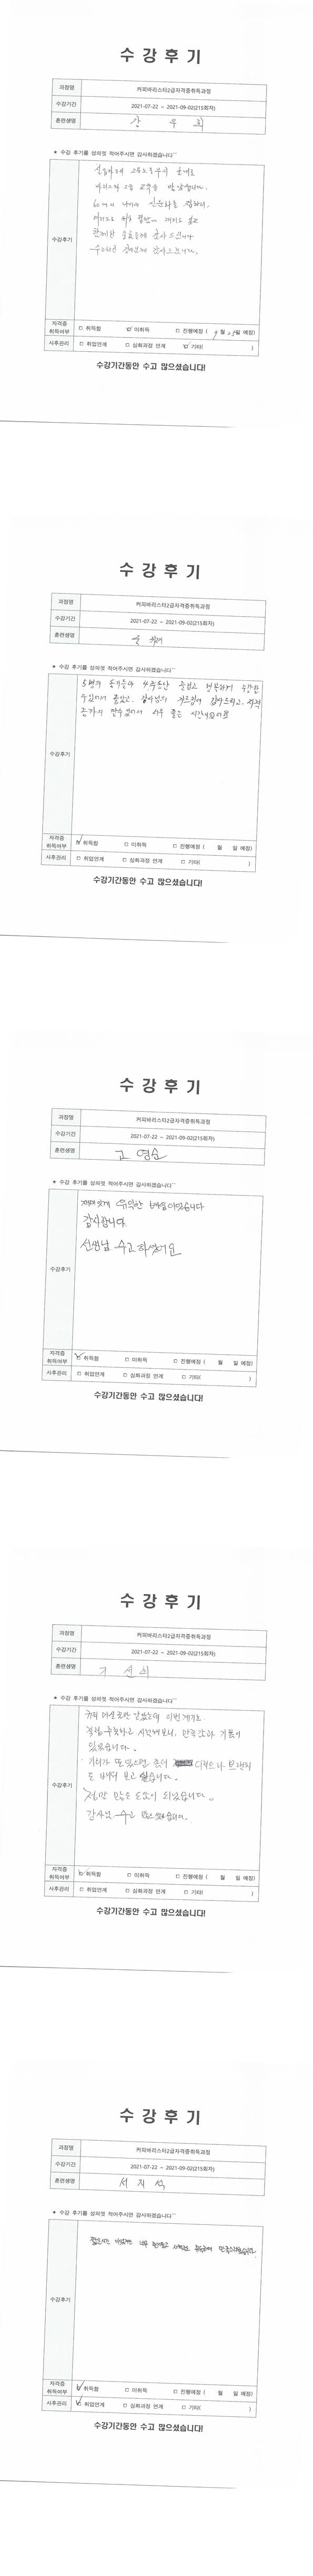 수 강 후 기
과정명 커피바리스타2급자격증취득과정
수강기간 2021-07-22 ~ 2021-09-02(215회차)
훈련생명
★ 수강 후기를 성의껏 적어주시면 감사하겠습니다^^
바리스타 2급 교육을 받았습니다.
수강후기
자격증 취득여부 □ 취득함 □ 미취득 □ 진행예정 ( 9 월 일 예정)
사후관리 □ 취업연계 □ 심화과정 연계 □ 기타( )
수강기간동안 수고 많으셨습니다!
수 강 후 기
과정명 커피바리스타2급자격증취득과정
수강기간 2021-07-22 ~ 2021-09-02(215회차)
훈련생명
★ 수강 후기를 성의껏 적어주시면 감사하겠습니다^^
5명의 동기들과 즐겁고 행복하게 수강할
수 있어서 좋았고, 감사드리고, 자격
증까지 딸수있어서 너무 좋은 시간이었어요
수강후기
자격증 취득여부 □ 취득함 □ 미취득 □ 진행예정 ( 월 일 예정)
사후관리 □ 취업연계 □ 심화과정 연계 □ 기타( )
수강기간동안 수고 많으셨습니다!
수 강 후 기
과정명 커피바리스타2급자격증취득과정
수강기간 2021-07-22 ~ 2021-09-02(215회차)
훈련생명 고 영순
★ 수강 후기를 성의껏 적어주시면 감사하겠습니다^^
재미있게 유익한
감사합니다.
선생님 수고하셨어요
수강후기
자격증 취득여부 □ 취득함 □ 미취득 □ 진행예정 ( 월 일 예정)
사후관리 □ 취업연계 □ 심화과정 연계 □ 기타( )
수강기간동안 수고 많으셨습니다!
수 강 후 기
과정명 커피바리스타2급자격증취득과정
수강기간 2021-07-22 ~ 2021-09-02(215회차)
훈련생명 선희
★ 수강 후기를 성의껏 적어주시면 감사하겠습니다^^
커피 이번 계기로
직접 추출하고 시식해보니, 만족감과 기쁨이
있었습니다.
기회가 또 있으면 좀더 디저트나 브런치
도 배워 보고 싶습니다.
정말 많은 도움이 되었습니다.
강사님 수고 많으셨습니다.
수강후기
자격증 취득여부 □ 취득함 □ 미취득 □ 진행예정 ( 월 일 예정)
사후관리 □ 취업연계 □ 심화과정 연계 □ 기타( )
수강기간동안 수고 많으셨습니다!
수 강 후 기
과정명 커피바리스타2급자격증취득과정
수강기간 2021-07-22 ~ 2021-09-02(215회차)
훈련생명 서 지 석
★ 수강 후기를 성의껏 적어주시면 감사하겠습니다^^
짧은시간 이었지만 너무
수강후기
자격증 취득여부 □ 취득함 □ 미취득 □ 진행예정 ( 월 일 예정)
사후관리 □ 취업연계 □ 심화과정 연계 □ 기타( )
수강기간동안 수고 많으셨습니다!